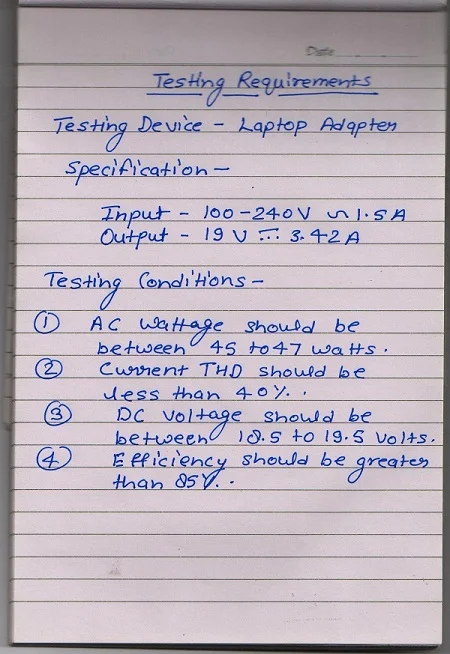 Date
Testing Requirements
Testing Device - Laptop Adapter
Specification -
Input - 100-240V ~ 1.5A
Output - 19 V ⎓ 3.42A
Testing Conditions -
① AC Wattage should be
between 45 to 47 watts.
② Current THD should be
less than 40%.
③ DC Voltage should be
between 18.5 to 19.5 Volts.
④ Efficiency should be greater
than 85%.